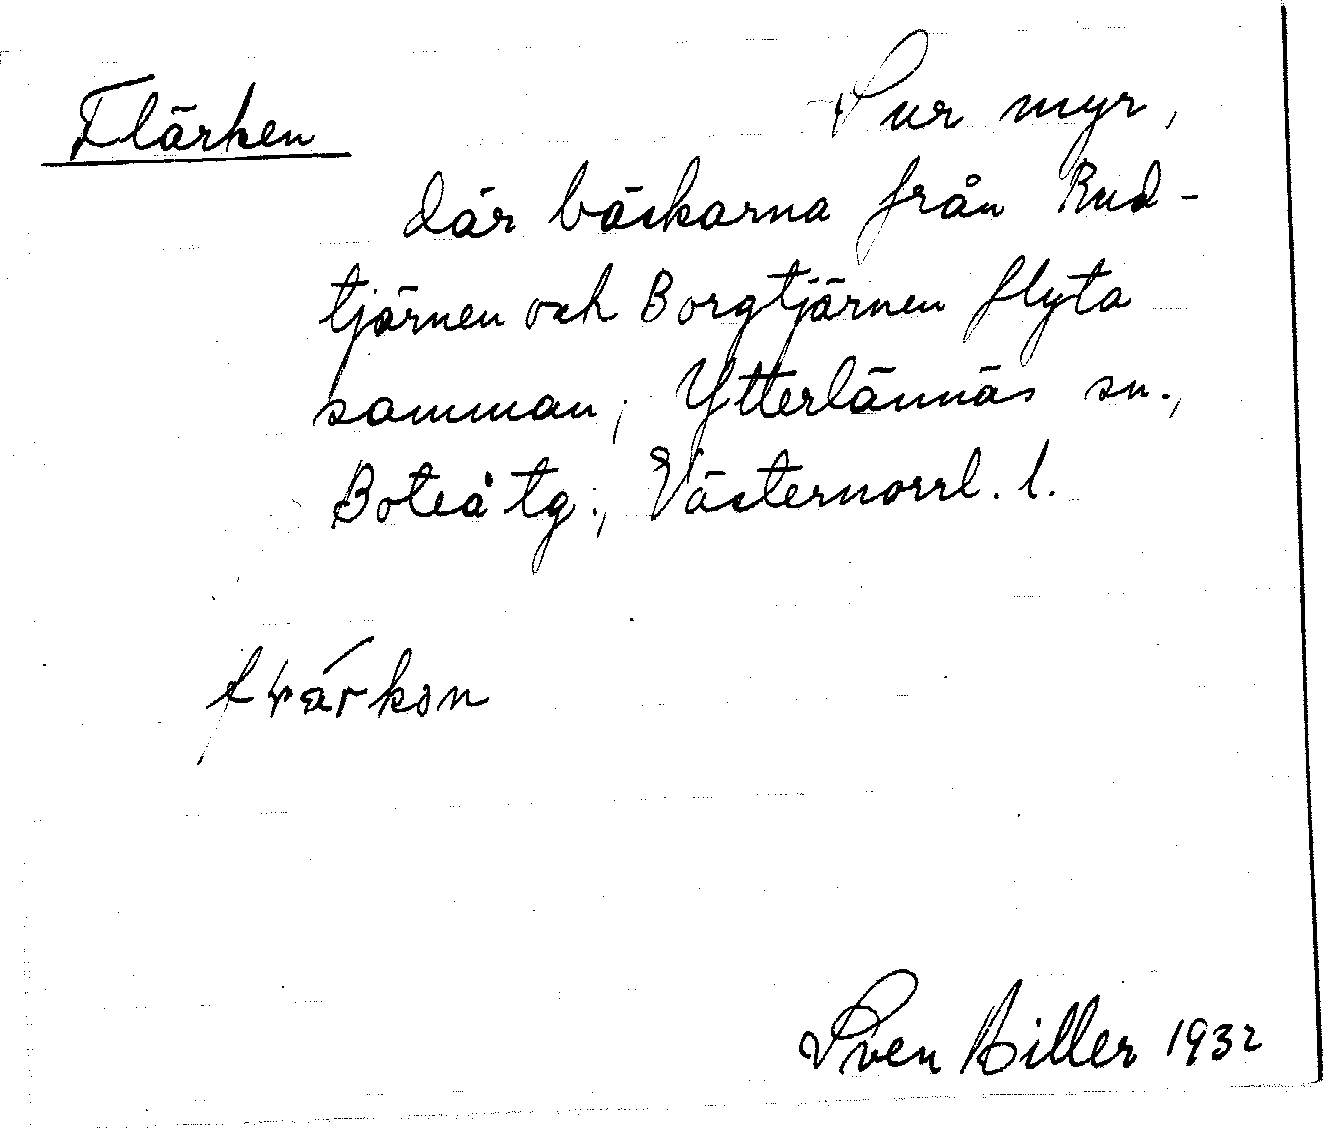 Flärken Sur myr,
där bäckarna från Rud-
tjärnen och Borgtjärnen flyta
samman; Ytterlännäs sn.,
Boteå tg., Västernorrl. l.
Sven Biller 1932